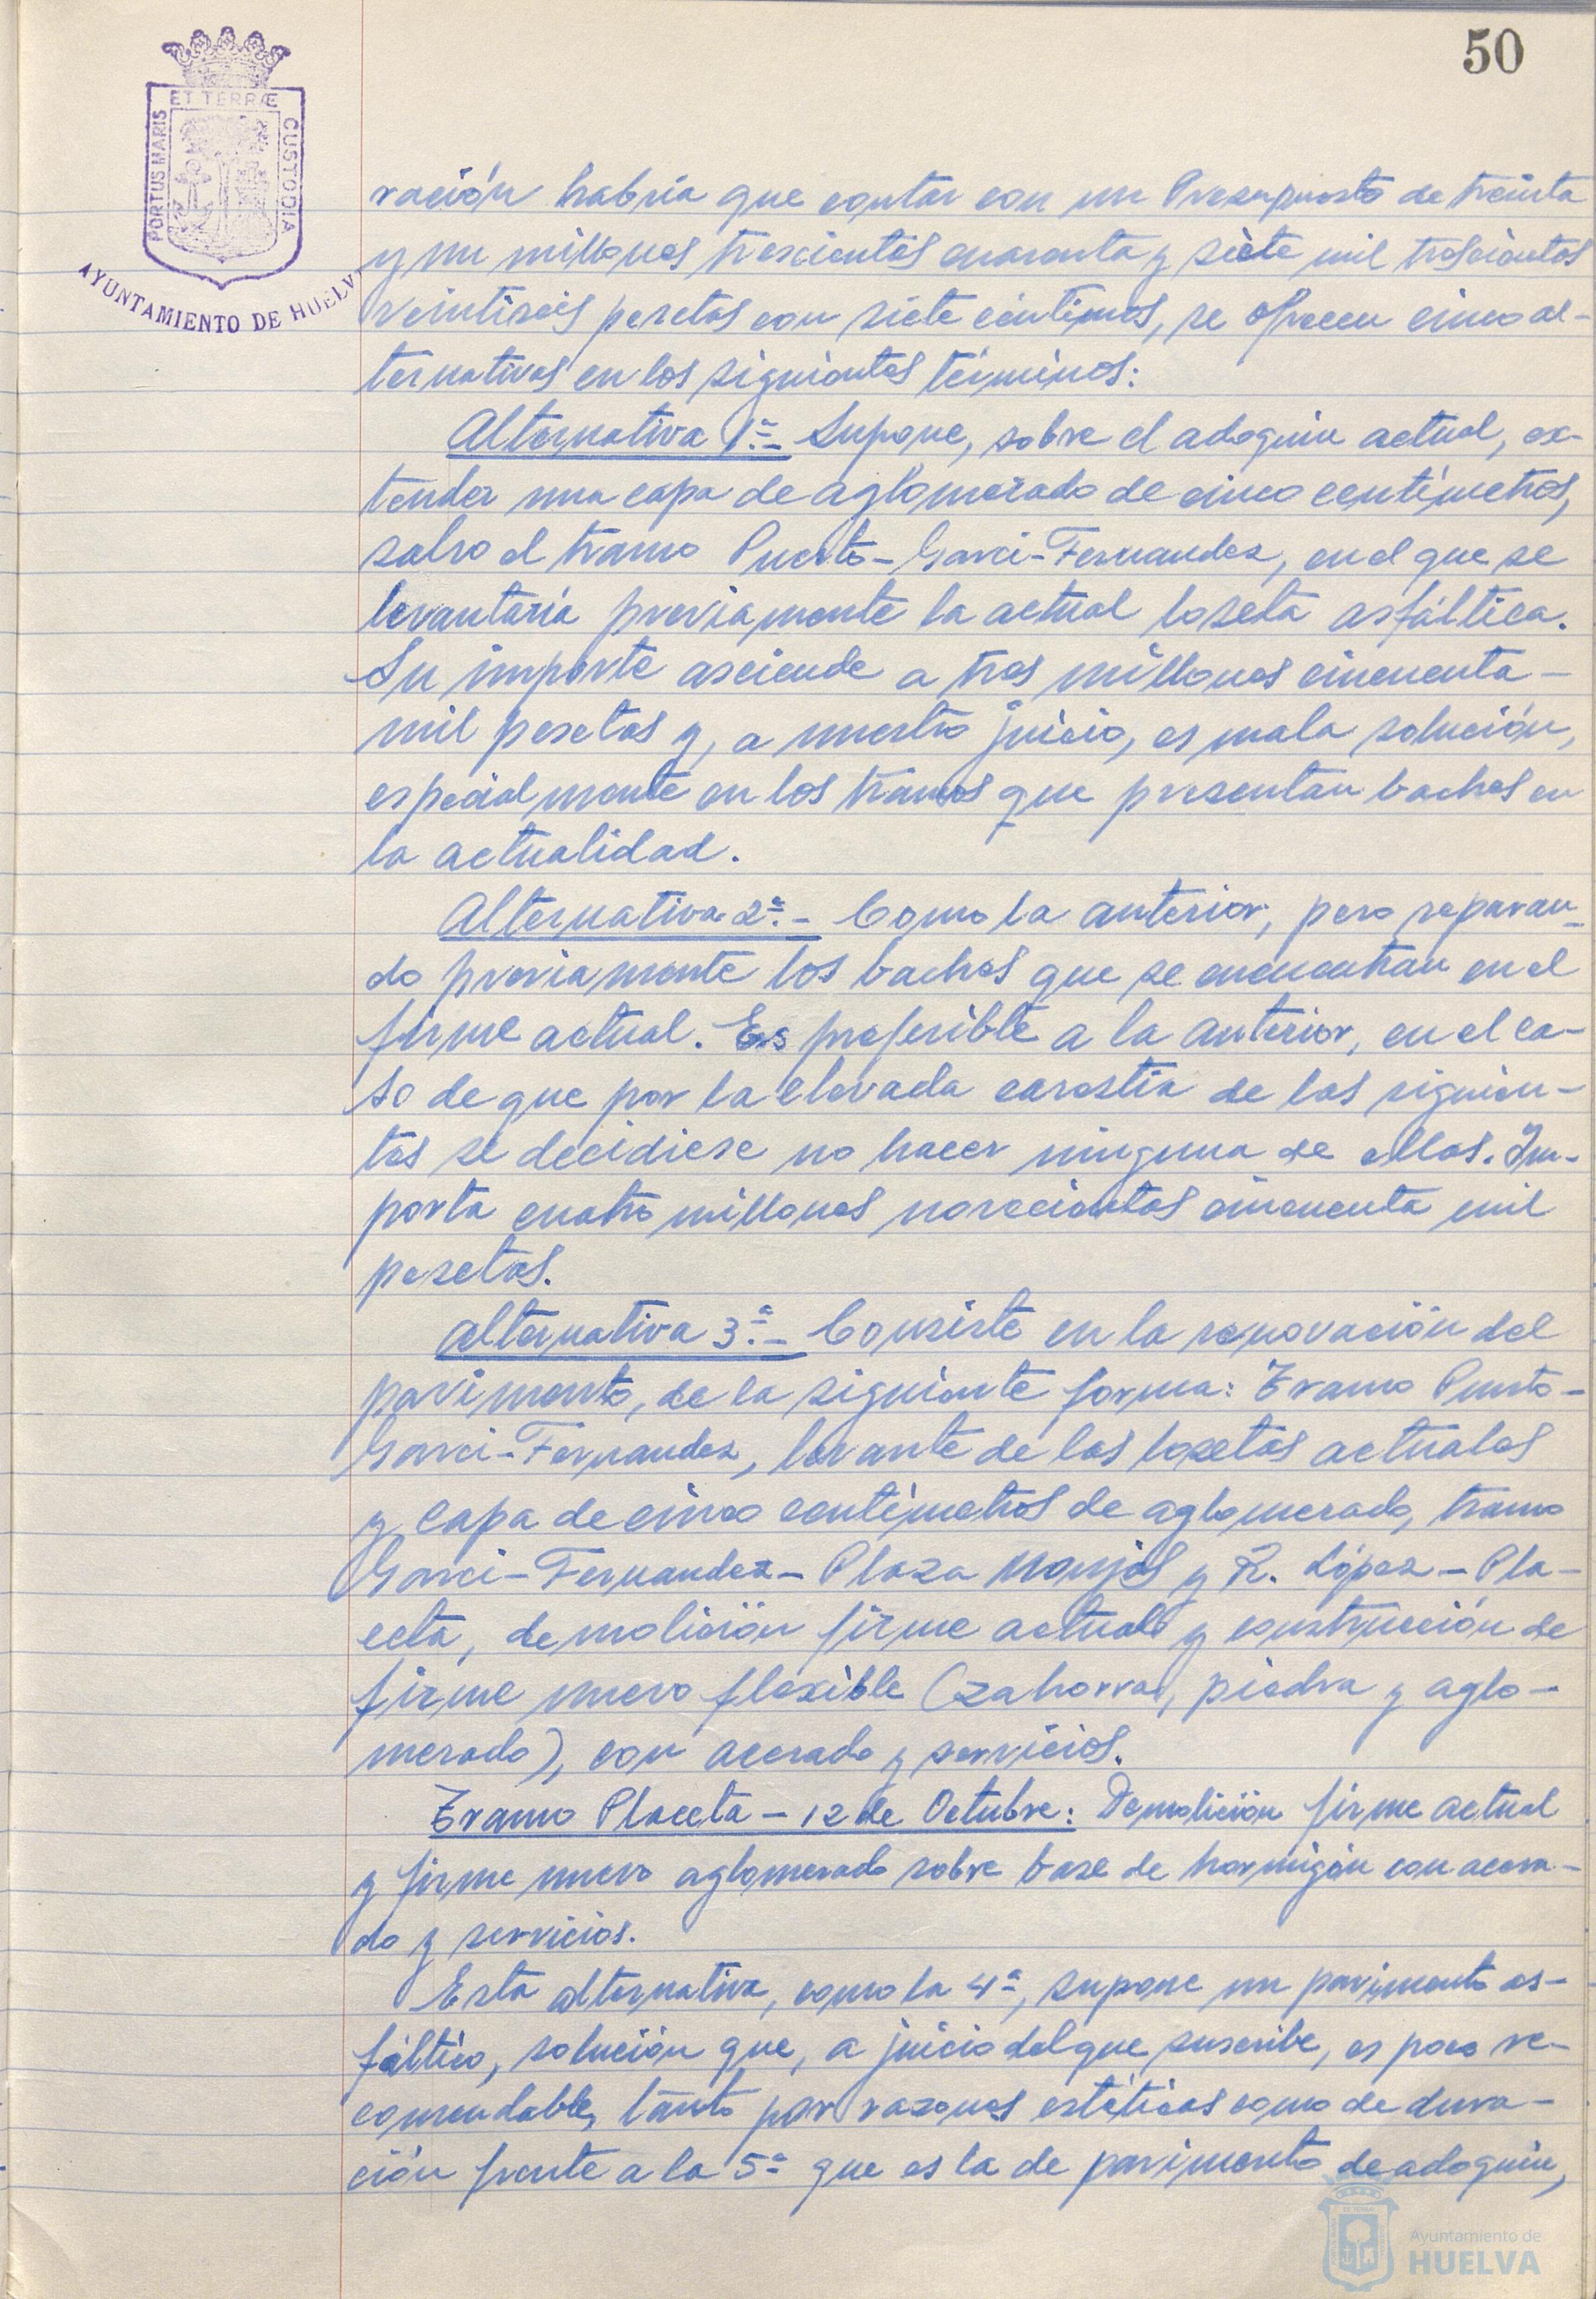 50
ET TERRÆ
PORTUS MARIS
CUSTODIA
AYUNTAMIENTO DE HUELVA
ración habria que contar con un Presupuesto de treinta
y un millones trescientos cuarenta y siete mil trescientos
veintiseis pesetas con siete céntimos, se ofrecen cinco al-
ternativas en los siguientes términos:
Alternativa 1ª.- Supone, sobre el adoquin actual, ex-
tender una capa de aglomerado de cinco centímetros,
salvo el tramo Puerto-Garci-Fernandez, en el que se
levantaría previamente la actual loseta asfáltica.
Su importe asciende a tres millones cincuenta-
mil pesetas y, a nuestro juicio, es mala solución,
especialmente en los tramos que presentan baches en
la actualidad.
Alternativa 2ª.- Como la anterior, pero reparan-
do previamente los baches que se encuentran en el
firme actual. Es preferible a la anterior, en el ca-
so de que por la elevada carestia de las siguien-
tes se decidiese no hacer ninguna de ellas. Im-
porta cuatro millones novecientas cincuenta mil
pesetas.
Alternativa 3ª.- Consiste en la renovación del
pavimento, de la siguiente forma: Tramo Puerto-
Garci-Fernandez, levante de las losetas actuales
y capa de cinco centímetros de aglomerado, tramo
Garci-Fernandez-Plaza Monjas y R. López-Pla-
ceta, demolición firme actual y construcción de
firme nuevo flexible (zahorra, piedra y aglo-
merado), con acerado y servicios.
Tramo Placeta-12 de Octubre: Demolición firme actual
y firme nuevo aglomerado sobre base de hormigón con acera-
do y servicios.
Esta alternativa, como la 4ª, supone un pavimento as-
fáltico, solución que, a juicio del que suscribe, es poco re-
comendable, tanto por razones estéticas como de dura-
ción frente a la 5ª que es la de pavimento de adoquin,
Ayuntamiento de
HUELVA